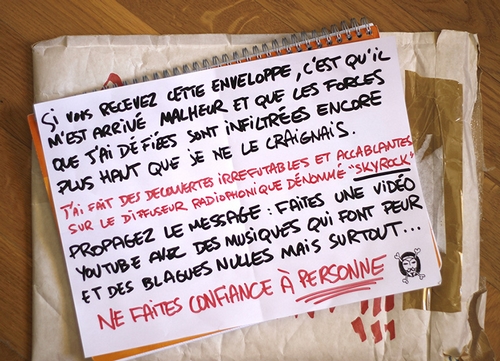 SI VOUS RECEVEZ CETTE ENVELOPPE, C'EST QU'IL
M'EST ARRIVÉ MALHEUR ET QUE LES FORCES
QUE J'AI DÉFIÉES SONT INFILTRÉES ENCORE
PLUS HAUT QUE JE NE LE CRAIGNAIS.
J'AI FAIT DES DECOUVERTES IRREFUTABLES ET ACCABLANTES
SUR LE DIFFUSEUR RADIOPHONIQUE DÉNOMMÉ "SKYROCK"
PROPAGEZ LE MESSAGE : FAITES UNE VIDÉO
YOUTUBE AVEC DES MUSIQUES QUI FONT PEUR
ET DES BLAGUES NULLES MAIS SURTOUT...
NE FAITES CONFIANCE À PERSONNE